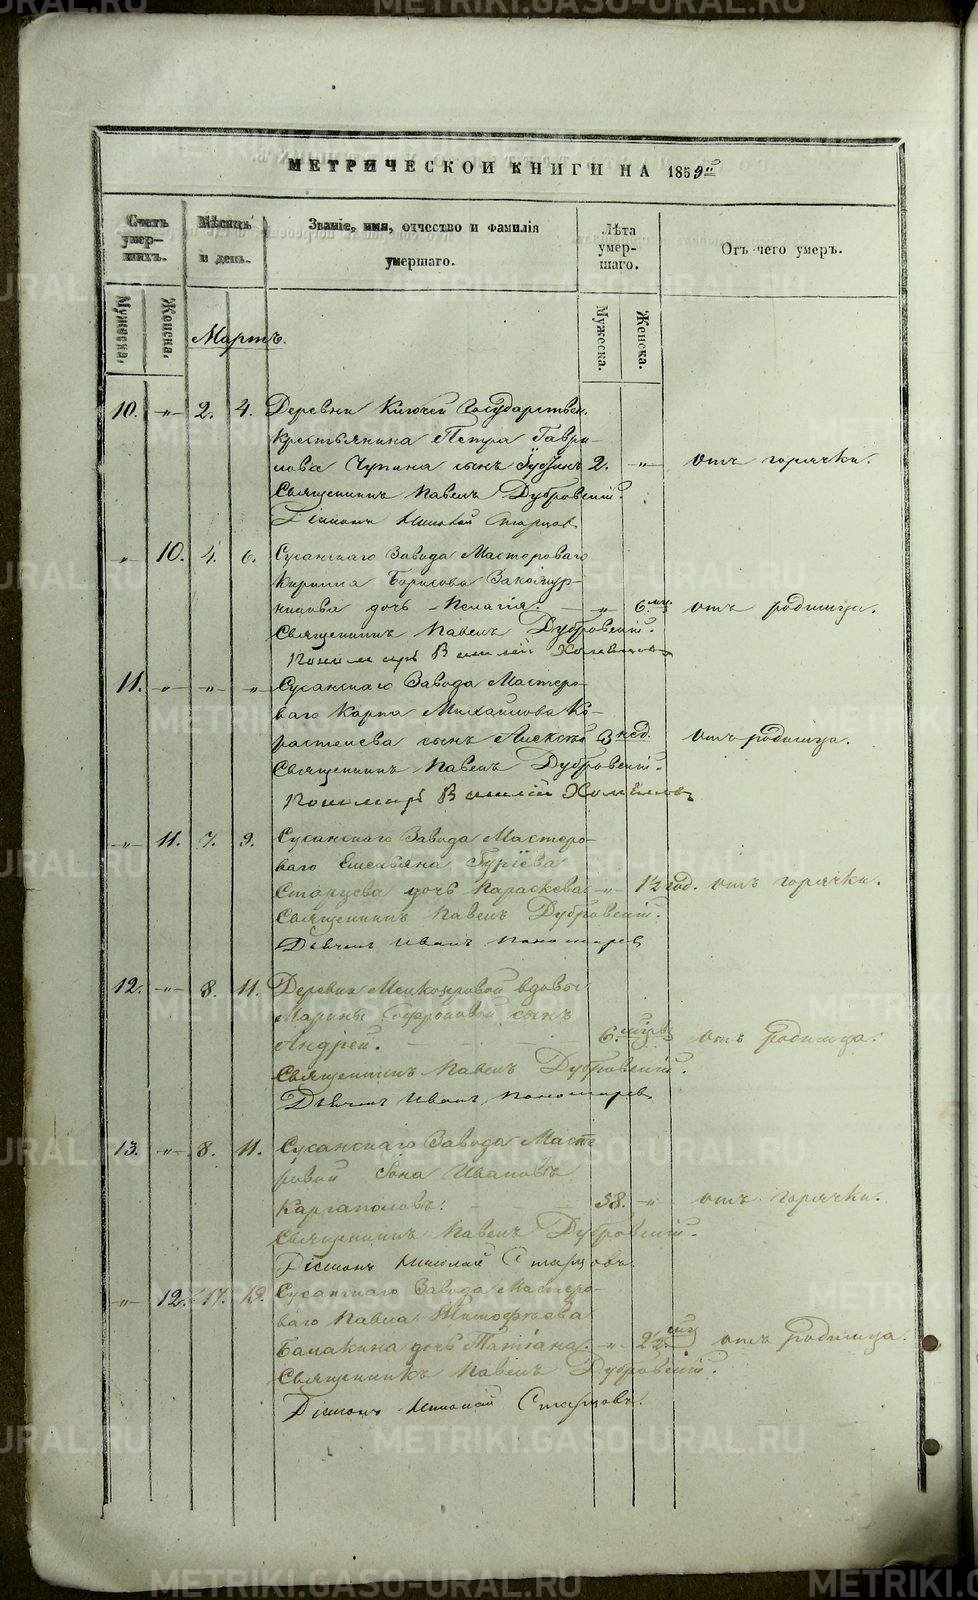 МЕТРИЧЕСКОЙ КНИГИ НА 1859й
Счетъ умер-шихъ.
Мѣсяцъ и день.
Званіе, имя, отчество и фамилія умершаго.
Лѣта умер-шаго.
Отъ чего умеръ.
Мужеска. Женска. Мартъ. Мужеска. Женска.
10. -"- 2. 4. Деревни Ключей Государствен.
Крестьянина Петра Гаври-
лова Чупина сынъ 2. -"- отъ горячки.
Священникъ Павелъ Дубровскій.
Діаконъ Николай Старцовъ
" 10. 4. 6. Сусанскаго Завода Мастероваго
Кирилла Борисова
дочь Пелагія. " 6. мц. отъ родимца.
Священникъ Павелъ Дубровскій.
Пономарь Василій
11. -"- -"- " Сусанскаго Завода Мастеро-
ваго Карпа Михайлова Ко-
растелева сынъ Алексѣй 3 нед. отъ родимца.
Священникъ Павелъ Дубровскій.
Пономарь Василій
-"- 11. 7. 9. Сусанскаго Завода Мастеро-
ваго Емельяна Гуріева
Старцева дочь Параскева -"- 1½ год. отъ горячки.
Священникъ Павелъ Дубровскій.
Дьячекъ Иванъ Пономаревъ
12. -"- 8. 11. Деревни вдовы
Марины Софроновой сынъ
Андрей. 6. отъ родимца.
Священникъ Павелъ Дубровскій.
Дьячекъ Иванъ Пономаревъ
13. -"- 8. 11. Сусанскаго Завода Масте
ровой Іона Ивановъ
Каргаполовъ. 38. -"- отъ горячки.
Священникъ Павелъ Дубровскій.
Діаконъ Николай Старцовъ
-"- 12. 17. 19. Сусанскаго Завода Мастеро-
ваго Павла Тимофѣева
Балакина дочь Татіана. -"- отъ родимца.
Священникъ Павелъ Дубровскій.
Діаконъ Николай Старцовъ.
METRIKI.GASO-URAL.RU